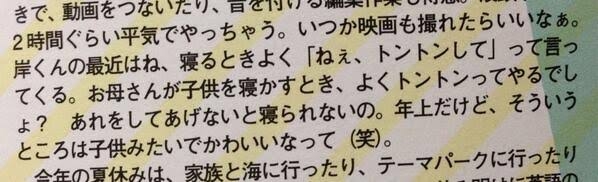 きで、動画をつないだり、音を付ける編集作業も得意。
2時間ぐらい平気でやっちゃう。いつか映画も撮れたらいいなぁ。
岸くんの最近はね、寝るときよく「ねぇ、トントンして」って言っ
てくる。お母さんが子供を寝かすとき、よくトントンってやるでし
ょ? あれをしてあげないと寝られないの。年上だけど、そういう
ところは子供みたいでかわいいなって(笑)。
今年の夏休みは、家族と海に行ったり、テーマパークに行ったり
英語の